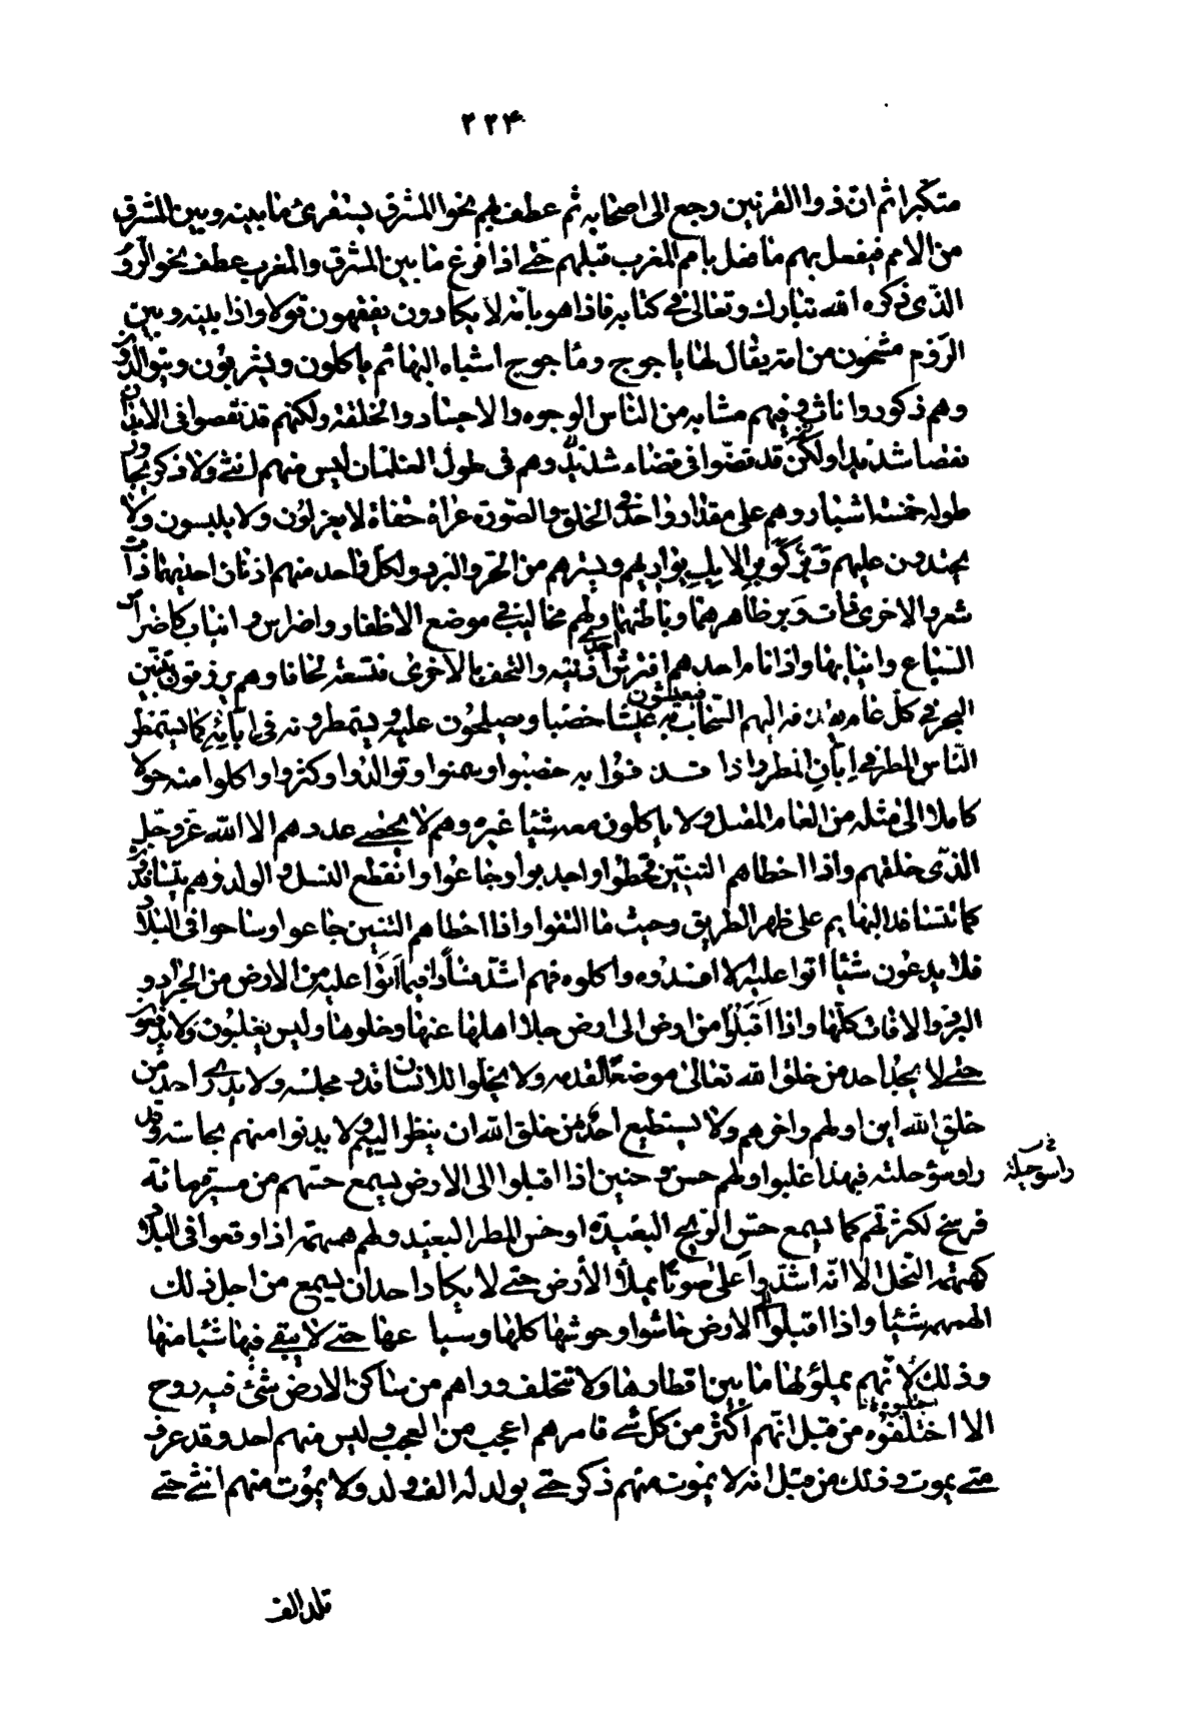 ۲۲۴
متكبرا ثم ان ذوالقرنين رجع الى اصحابه ثم عطف بهم نحو المشرق يستقرئ ما بينه وبين المشرق
من الامم فيفعل بهم ما فعل بامم المغرب قبلهم حتى اذا فرغ ما بين المشرق والمغرب عطف نحو الروم
الذى ذكره الله تبارك وتعالى فى كتابه فاذا هو بامة لا يكادون يفقهون قولا واذا بينه وبين
الروم مشحون من امة يقال لها ياجوج وماجوج اشباه البهائم ياكلون ويشربون ويتوالدون
وهم ذكور واناث وفيهم مشابه من الناس الوجوه والاجساد والخلقة ولكنهم قد نقصوا فى الابدان
نقصا شديدا ولكنهم قد نقصوا فى شديد وهم فى طول الغلمان ليس منهم انثى ولا ذكر يجاوز
طوله خمسة اشبار وهم على مقدار واحد فى الخلق والصورة عراة حفاة لا يغزلون ولا يلبسون ولا
يحتذون عليهم وبر كوبر الابل يواريهم ويسترهم من الحر والبرد ولكل واحد منهم اذنان احديهما ذات
شعر والاخرى ذات وبر ظاهرهما وباطنهما ولهم مخاليب فى موضع الاظفار واضراس وانياب كاضراس
السباع وانيابها واذا نام احدهم افترش احدى اذنيه والتحف بالاخرى فتسعه لحافا وهم يرزقون تنين
البحر فى كل عام يقذفه اليهم السحاب فيعيشون به عيشا خصبا ويصلحون عليه ويستمطرونه فى ابانه كما يستمطر
الناس المطر فى ابان المطر واذا قذفوا به خصبوا وسمنوا وتوالدوا وكثروا واكلوا منه حولا
كاملا الى مثله من العام المقبل ولا ياكلون معه شيئا غيره وهم لا يحصى عددهم الا الله عز وجل
الذى خلقهم واذا اخطاهم التنين قحطوا واجدبوا وجاعوا وانقطع النسل والولد وهم يتسافدون
كما تتسافد البهايم على ظهر الطريق وحيث ما التقوا واذا اخطاهم التنين جاعوا وساحوا فى البلاد
فلا يدعون شيئا اتوا عليه الا افسدوه واكلوه فهم اشد فسادا فيما اتوا عليه من الارض من الجراد و
البرد والافات كلها واذا اقبلوا من ارض الى ارض جلا اهلها عنها وخلوها وليس يغلبون ولا يدفعون
حتى لا يجد احد من خلق الله تعالى موضعا لقدمه ولا يخلوا للانسان قدر مجلسه ولا يدرى احد من
خلق الله اين اولهم واخرهم ولا يستطيع احد من خلق الله ان ينظر اليهم ولا يدنوا منهم نجاسة وقذرا
وسوء حلية فبهذا غلبوا ولهم حس وحنين اذا اقبلوا الى الارض يسمع حسهم من مسيرة مائة
فرسخ لكثرتهم كما يسمع حس الريح البعيدة او حس المطر البعيد ولهم همهمة اذا وقعوا فى البلاد
كهمهمة النحل الا انه اشد واعلى صوتا يملا الارض حتى لا يكاد احد ان يسمع من اجل ذلك
الهمهمة شيئا واذا اقبلوا الى الارض حاشوا وحوشها كلها وسباعها حتى لا يبقى فيها شيئا منها
وذلك لانهم يملؤنها ما بين اقطارها ولا تتخلف وراهم من ساكن الارض شئ فيه روح
الا اجتلبوه من قبل انهم اكثر من كل شئ فامرهم اعجب من العجب وليس منهم احد وقد عرف
متى يموت وذلك من قبل انه لا يموت منهم ذكر حتى يولد له الف ولد ولا يموت منهم انثى حتى
تلد الف